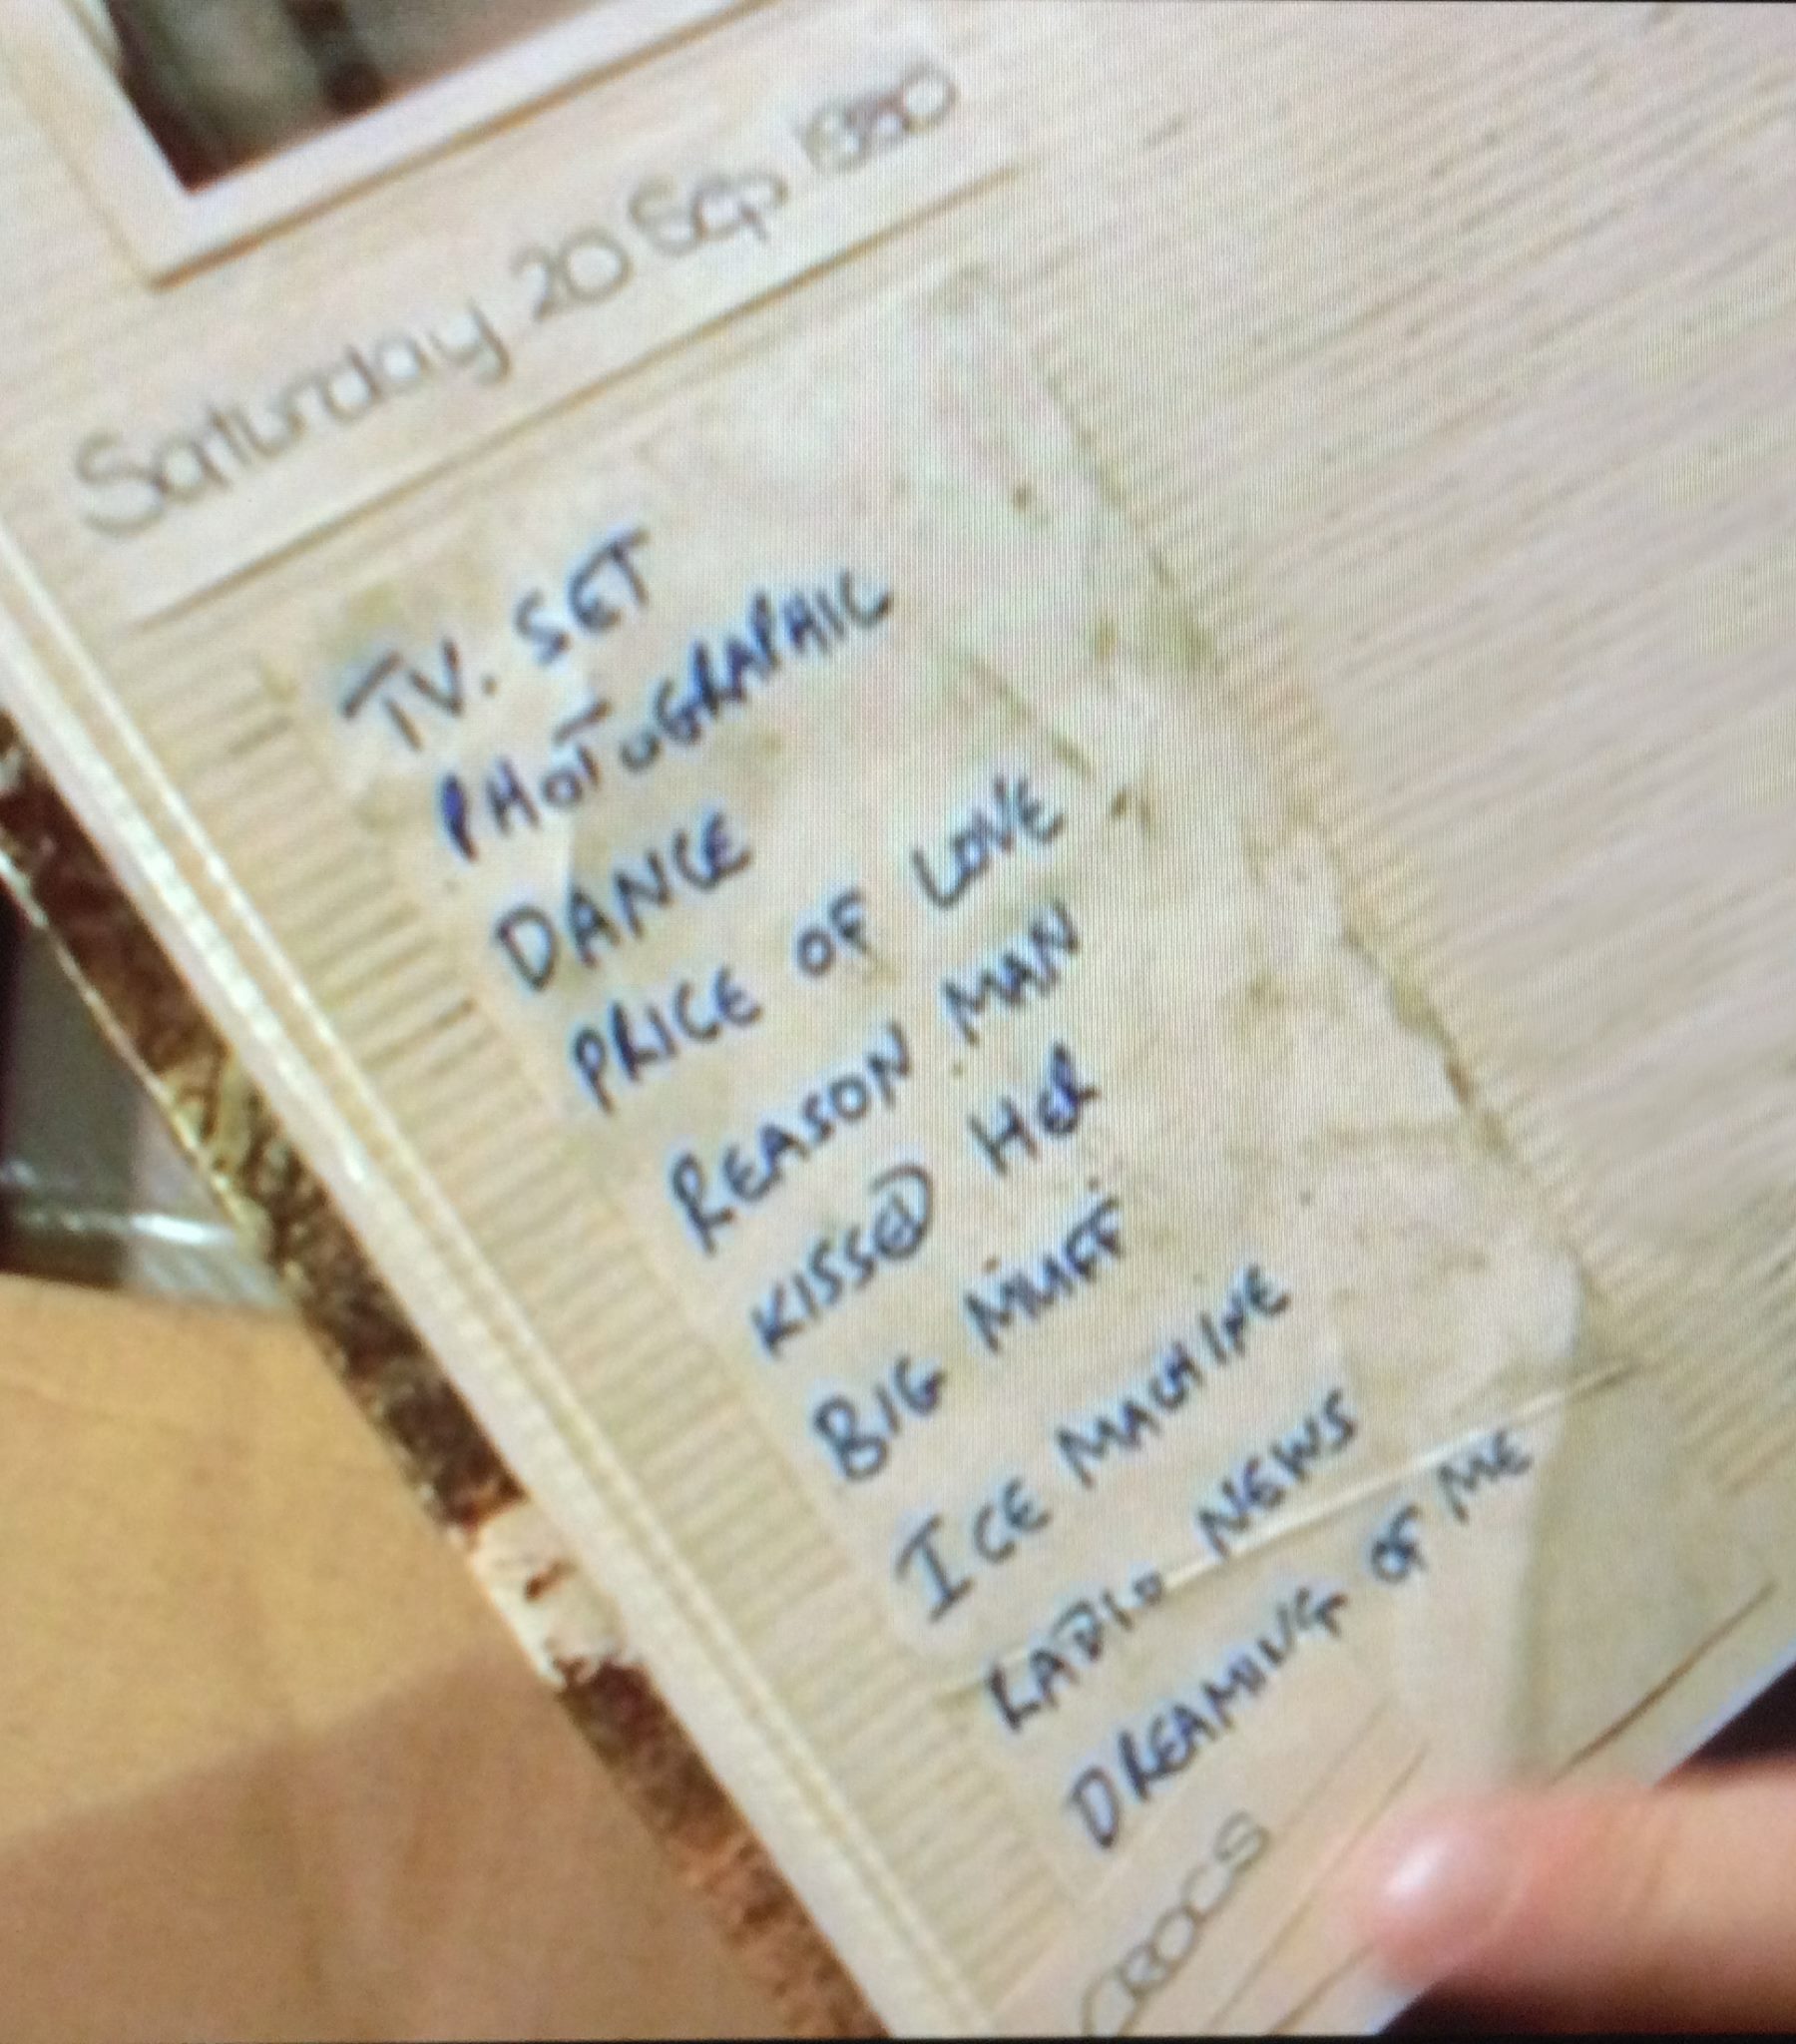 Saturday 20 Sep 1980
TV. SET
PHOTOGRAPHIC
DANCE
PRICE OF LOVE
REASON MAN
KISSED HER
BIG MUFF
ICE MACHINE
RADIO NEWS
DREAMING OF ME
CROCS